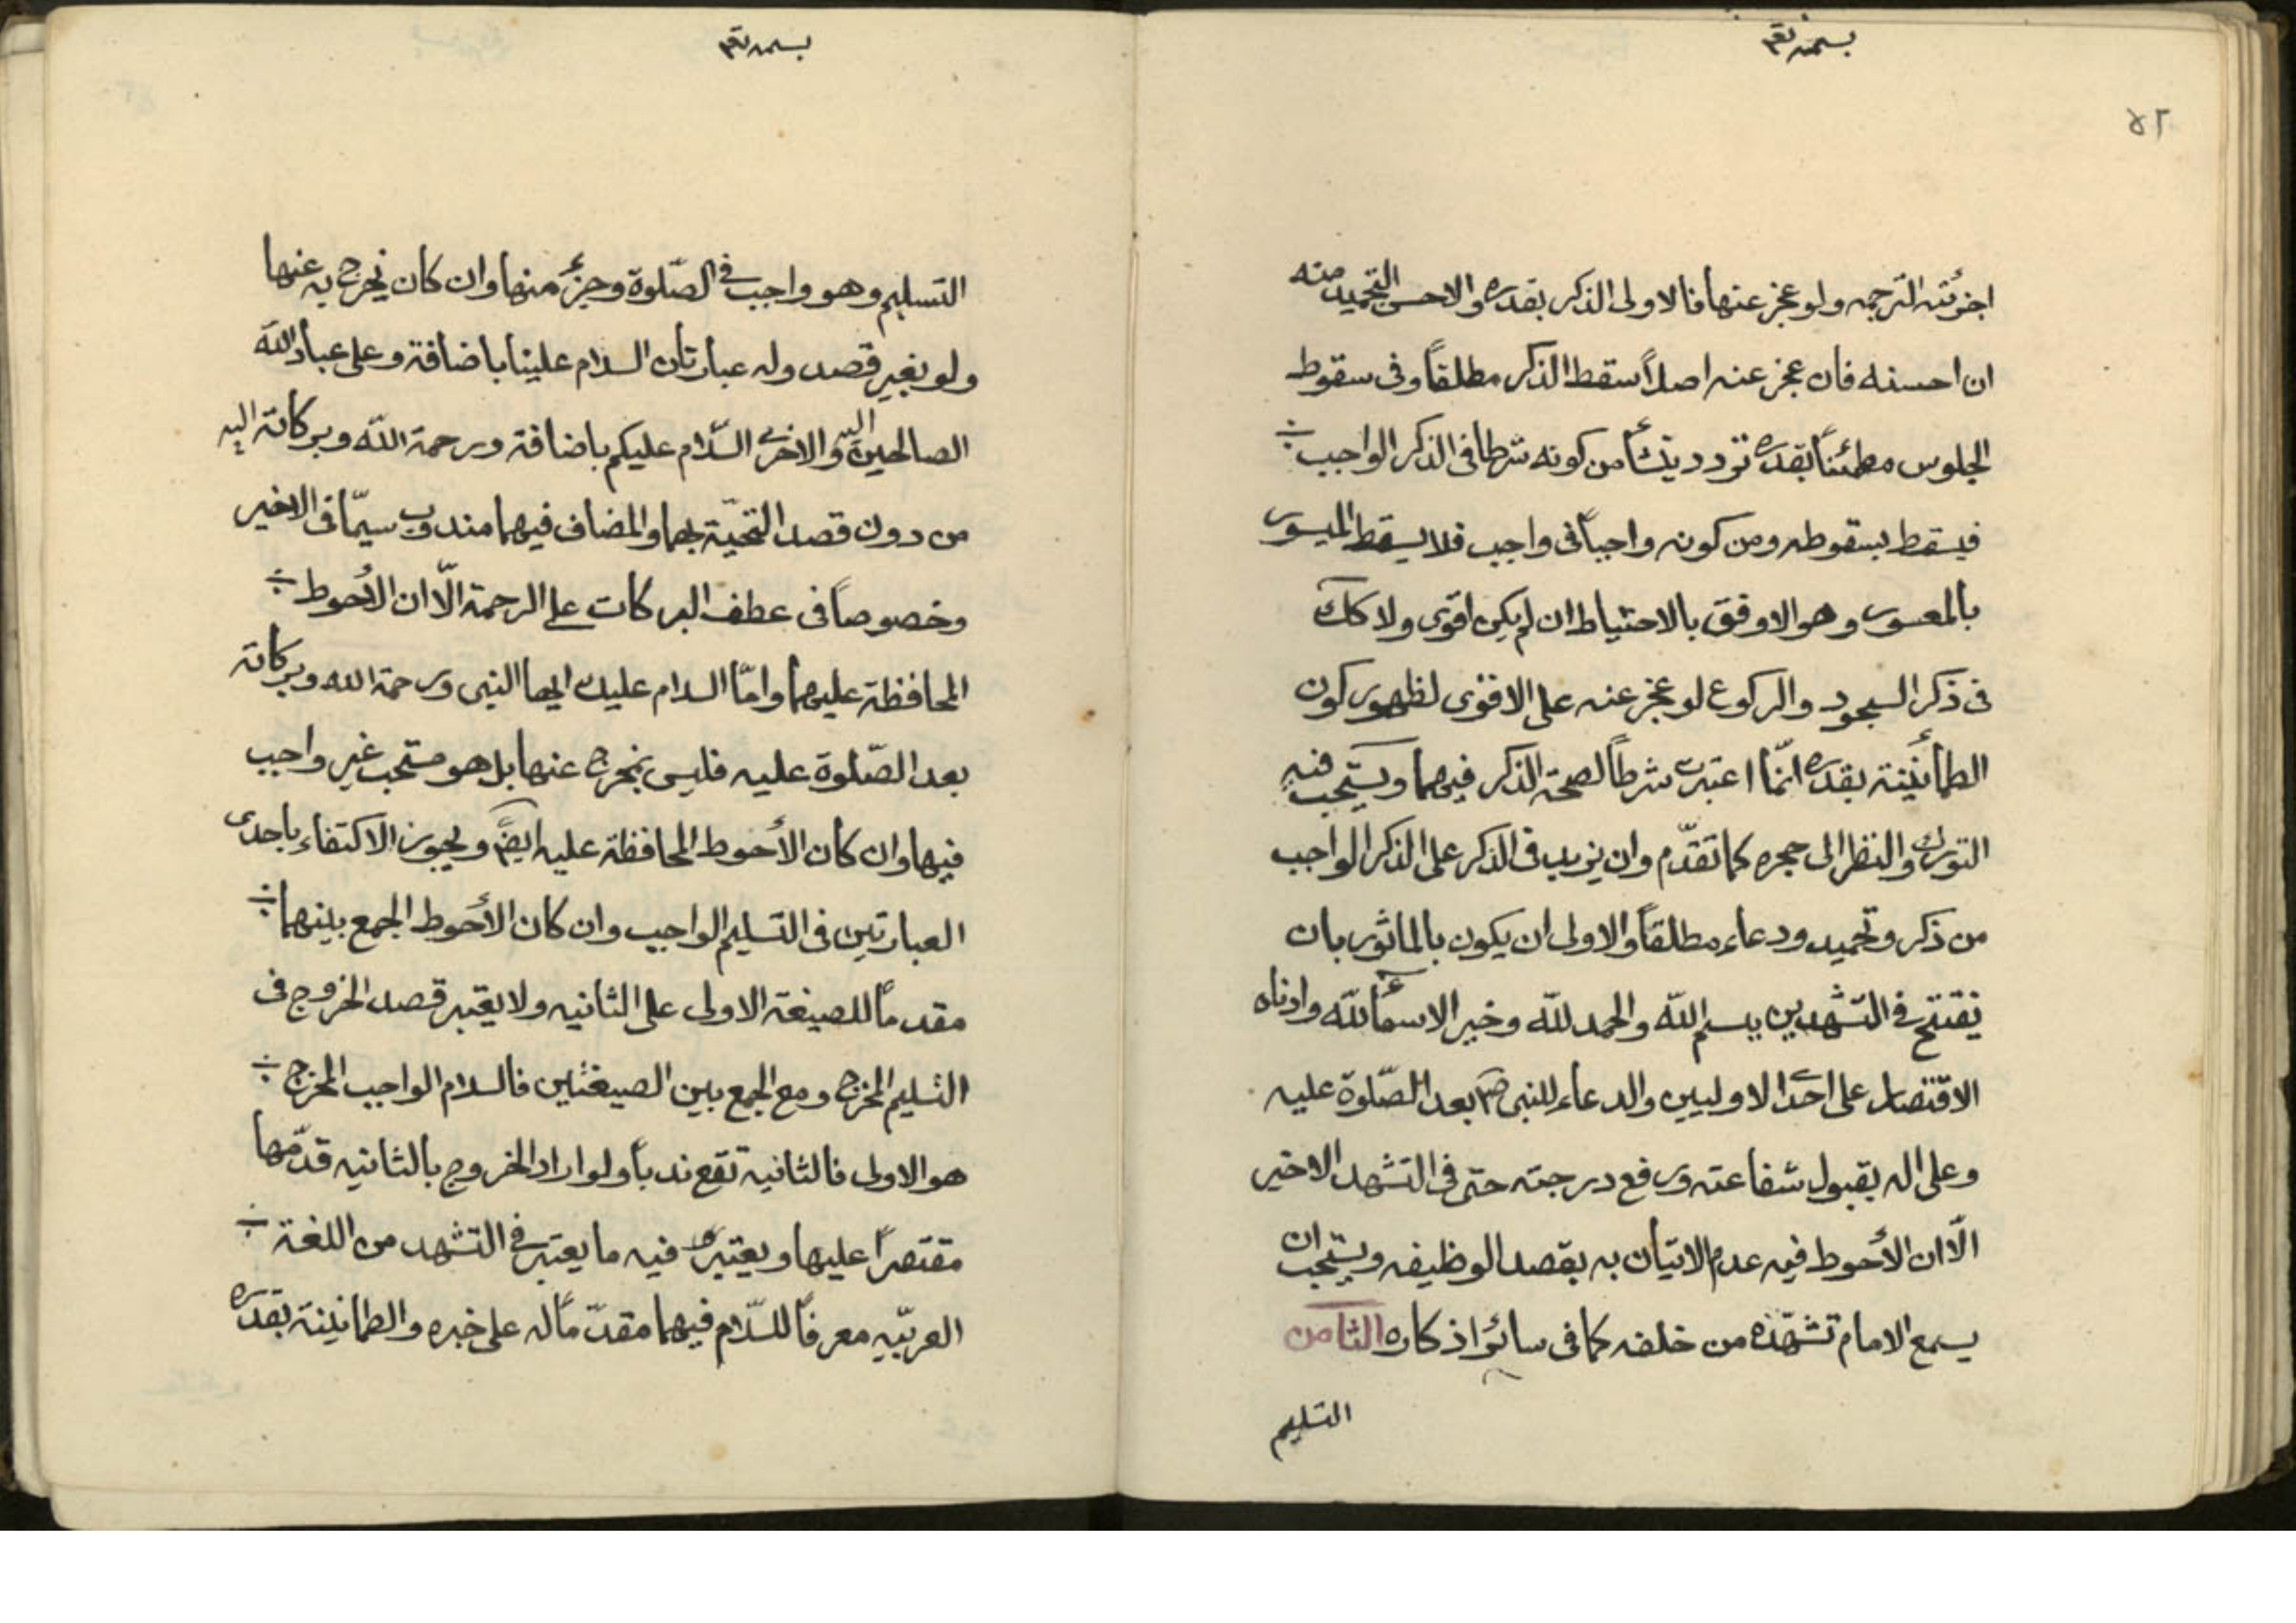 بسمه تعم
٥٢
اجزئته الترجمه ولو عجز عنها فالاولى الذكر بقدره والاحسن التحميد منه
ان احسنه فان عجز عنه اصلاً سقط الذكر مطلقاً وفى سقوط
الجلوس مطمئناً بقدره تردد ينشأ من كونه شرطا فى الذكر الواجب
فيسقط بسقوطه ومن كونه واجباً فى واجب فلا يسقط الميسور
بالمعسور وهو الاوفق بالاحتياط ان لم يكن اقوى ولا كك
فى ذكر السجود والركوع لو عجز عنه على الاقوى لظهور كون
الطمأنينة بقدره انمّا اعتبرت شرطاً لصحة الذكر فيهما ويستحب فيه
التورك والنظر الى حجره كما تقدّم وان يزيد فى الذكر على الذكر الواجب
من ذكر وتحميد ودعاء مطلقاً والاولى ان يكون بالماثور بان
يفتتح فى التشهدين ببسم اللّه والحمد للّه وخير الاسماء للّه وادناه
الاقتصار على احد الاوليين والدعاء للنبى صم بعد الصّلوة عليه
وعلى اله بقبول شفاعته ورفع درجته حتى فى التشهد الاخير
الّا ان الأحوط فيه عدم الاتيان به بقصد الوظيفه ويستحب ان
يسمع الامام تشهّده من خلفه كما فى سائر اذكاره الثامن
التسليم
بسمه تعم
التسليم وهو واجب فى الصّلوة وجزء منها وان كان يخرج به عنها
ولو بغير قصد وله عبارتان السلام علينا باضافة وعلى عباد اللّه
الصالحين اليه والاخرى السّلام عليكم باضافة ورحمة اللّه وبركاته اليه
من دون قصد التحيّة بهما والمضاف فيهما مندوب سيمّا فى الاخير
وخصوصاً فى عطف البركات على الرحمة الّا ان الأحوط
المحافظة عليهما وامّا السلام عليك ايها النبى ورحمة الله وبركاته
بعد الصّلوة عليه فليس بمخرج عنها بل هو مستحب غير واجب
فيها وان كان الأحوط المحافظة عليه ايضً ويجوز الاكتفاء باحدى
العبارتين فى التسليم الواجب وان كان الأحوط الجمع بينهما
مقدماً للصيغة الاولى على الثانيه ولا يعتبر قصد الخروج فى
التسليم المخرج ومع الجمع بين الصيغتين فالسلام الواجب المخرج
هو الاولى فالثانيه تقع ندباً ولو اراد الخروج بالثانيه قدّمها
مقتصراً عليها ويعتبر فيه ما يعتبر فى التشهد من اللغة
العربيّه معرفاً للسّلام فيهما مقدّماً له على خبره والطمانينة بقدره